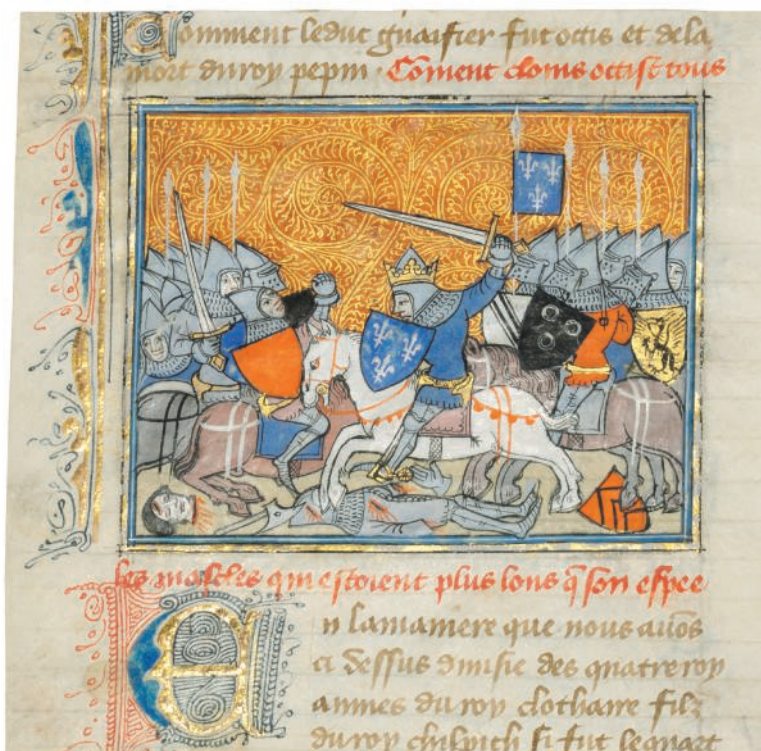 Comment leduc guaifier fut ocus et dela
mort du roy pepin · Cōment clouis occist tous
les masles qui estoient plus lons q̄ son espee
En lamaniere que nous auōs
ci dessus diuisie des quatre roy
aumes du roy clothaire filz
du roy chilperich si fut le